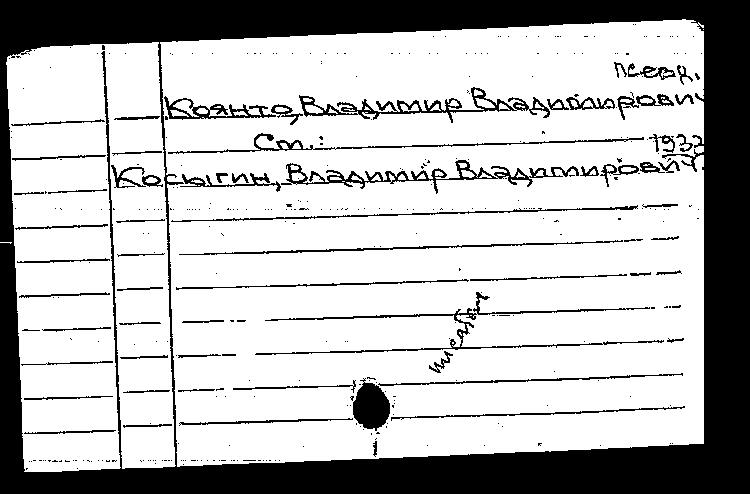 псевд.
Коянто, Владимир Владимирович
Ст.:
1933
Косыгин, Владимир Владимирович.
писатель